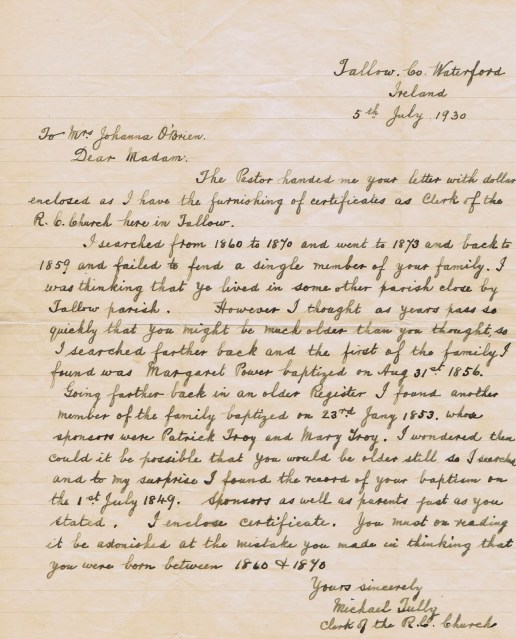 Tallow. Co. Waterford
Ireland
5th July 1930
To Mrs Johanna O'Brien.
Dear Madam.
The Pastor handed me your letter with dollar
enclosed as I have the furnishing of certificates as Clerk of the
R. C. Church here in Tallow.
I searched from 1860 to 1870 and went to 1873 and back to
1859 and failed to find a single member of your family. I
was thinking that Yo lived in some other parish close by
Tallow parish. However I thought as years pass so
quickly that you might be much older than you thought, so
I searched farther back and the first of the family I
found was Margaret Power baptized on Aug 31st 1856.
Going farther back in an older Register I found another
member of the family baptized on 23rd Jany 1853. whose
sponsors were Patrick Troy and Mary Troy. I wondered then
could it be possible that you would be older still so I searched
and to my surprise I found the record of your baptism on
the 1st July 1849. Sponsors as well as parents just as you
stated. I enclose certificate. You must on reading
it be astonished at the mistake you made in thinking that
you were born between 1860 & 1870
Yours sincerely
Michael Tully
Clerk of the R.C. Church